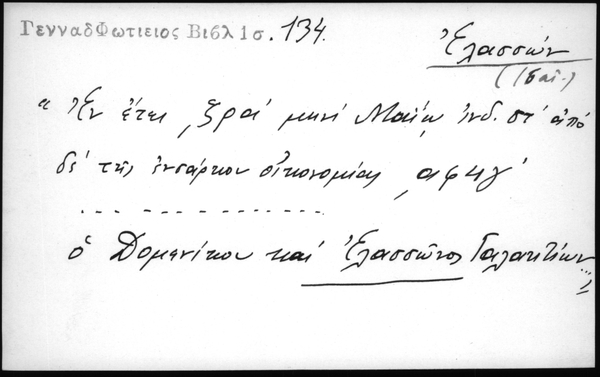 ΓενναδΦωτιειος Βιβλ 1 σ. 134.
Ἐλασσών
(16 αἰ.)
"Ἐν ἔτει ͵ζρα΄ μηνί Μαΐῳ ἰνδ. στ΄ ἀπό
δέ τῆς ἐνσάρκου οἰκονομίας ͵αφηγ΄
ὁ Δομενίκου καί Ἐλασσῶνος Γαλακτίων..."